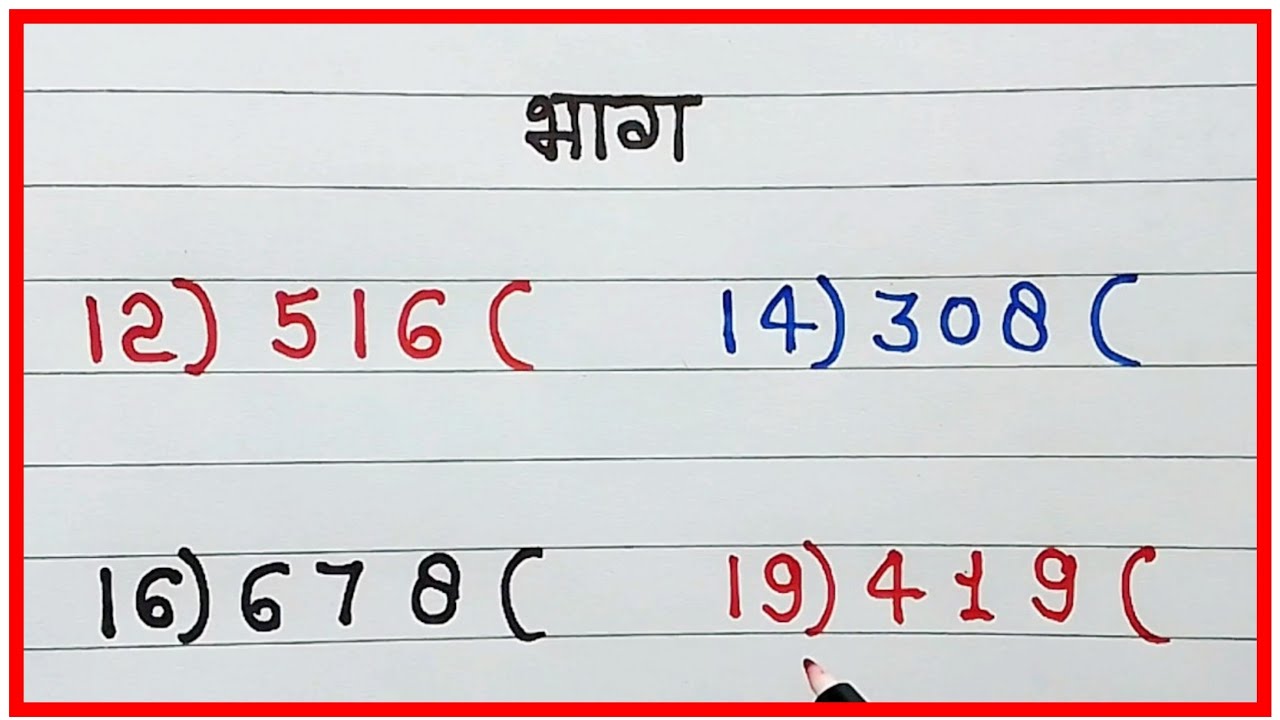 भाग
12) 516 ( 14) 308 (
16) 678 ( 19) 419 (